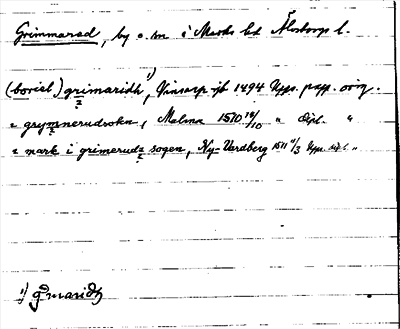 Grimmared, by o. sn i Marks hd Älvsborgs l.
(bovist) grimaridh, 1) Kinsarp jb 1494 Upps. papp. orig.
z grymnerudsokn, Malma 1510 14/10 " Dipl. "
z mark i grimerudz sogen, Ny-Vardberg 1511 4/3 Upps. dipl. "
1) gmaridh